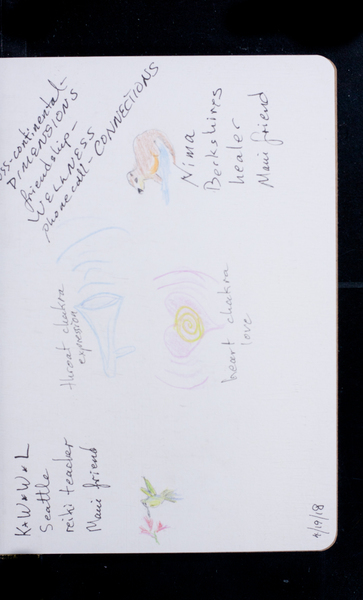 ss-continental-
DIMENSIONS
friendship-
WELLNESS
phone call- CONNECTIONS
Nima
Berkshires
healer
Maui friend
throat chakra
expression
heart chakra
love
K*W*W*L
Seattle
reiki teacher
Maui friend
4/19/18